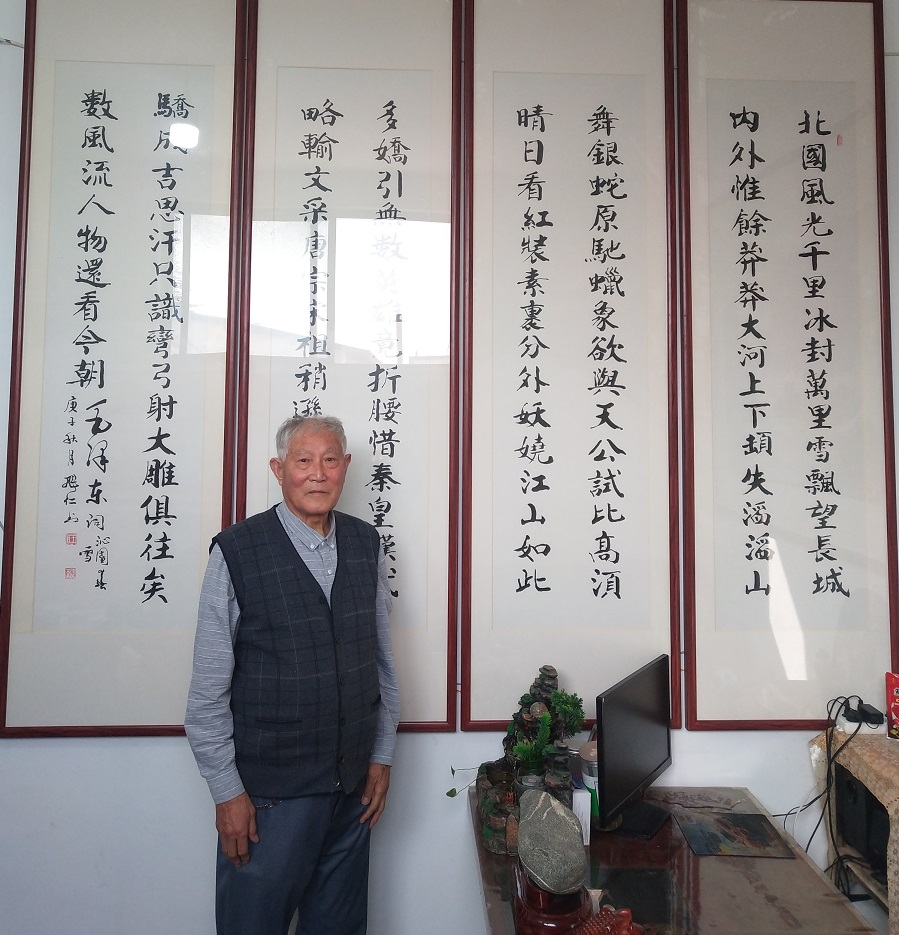 北國風光千里冰封萬里雪飄望長城
内外惟餘莽莽大河上下頓失滔滔山
舞銀蛇原馳蠟象欲與天公試比高湏
晴日看紅裝素裹分外妖嬈江山如此
多嬌引無數英雄竟折腰惜秦皇漢武
略輸文采唐宗宋祖稍遜
驕成吉思汗只識彎弓射大雕俱往矣
數風流人物還看今朝毛泽东词沁園春
雪
庚子秋月仁书